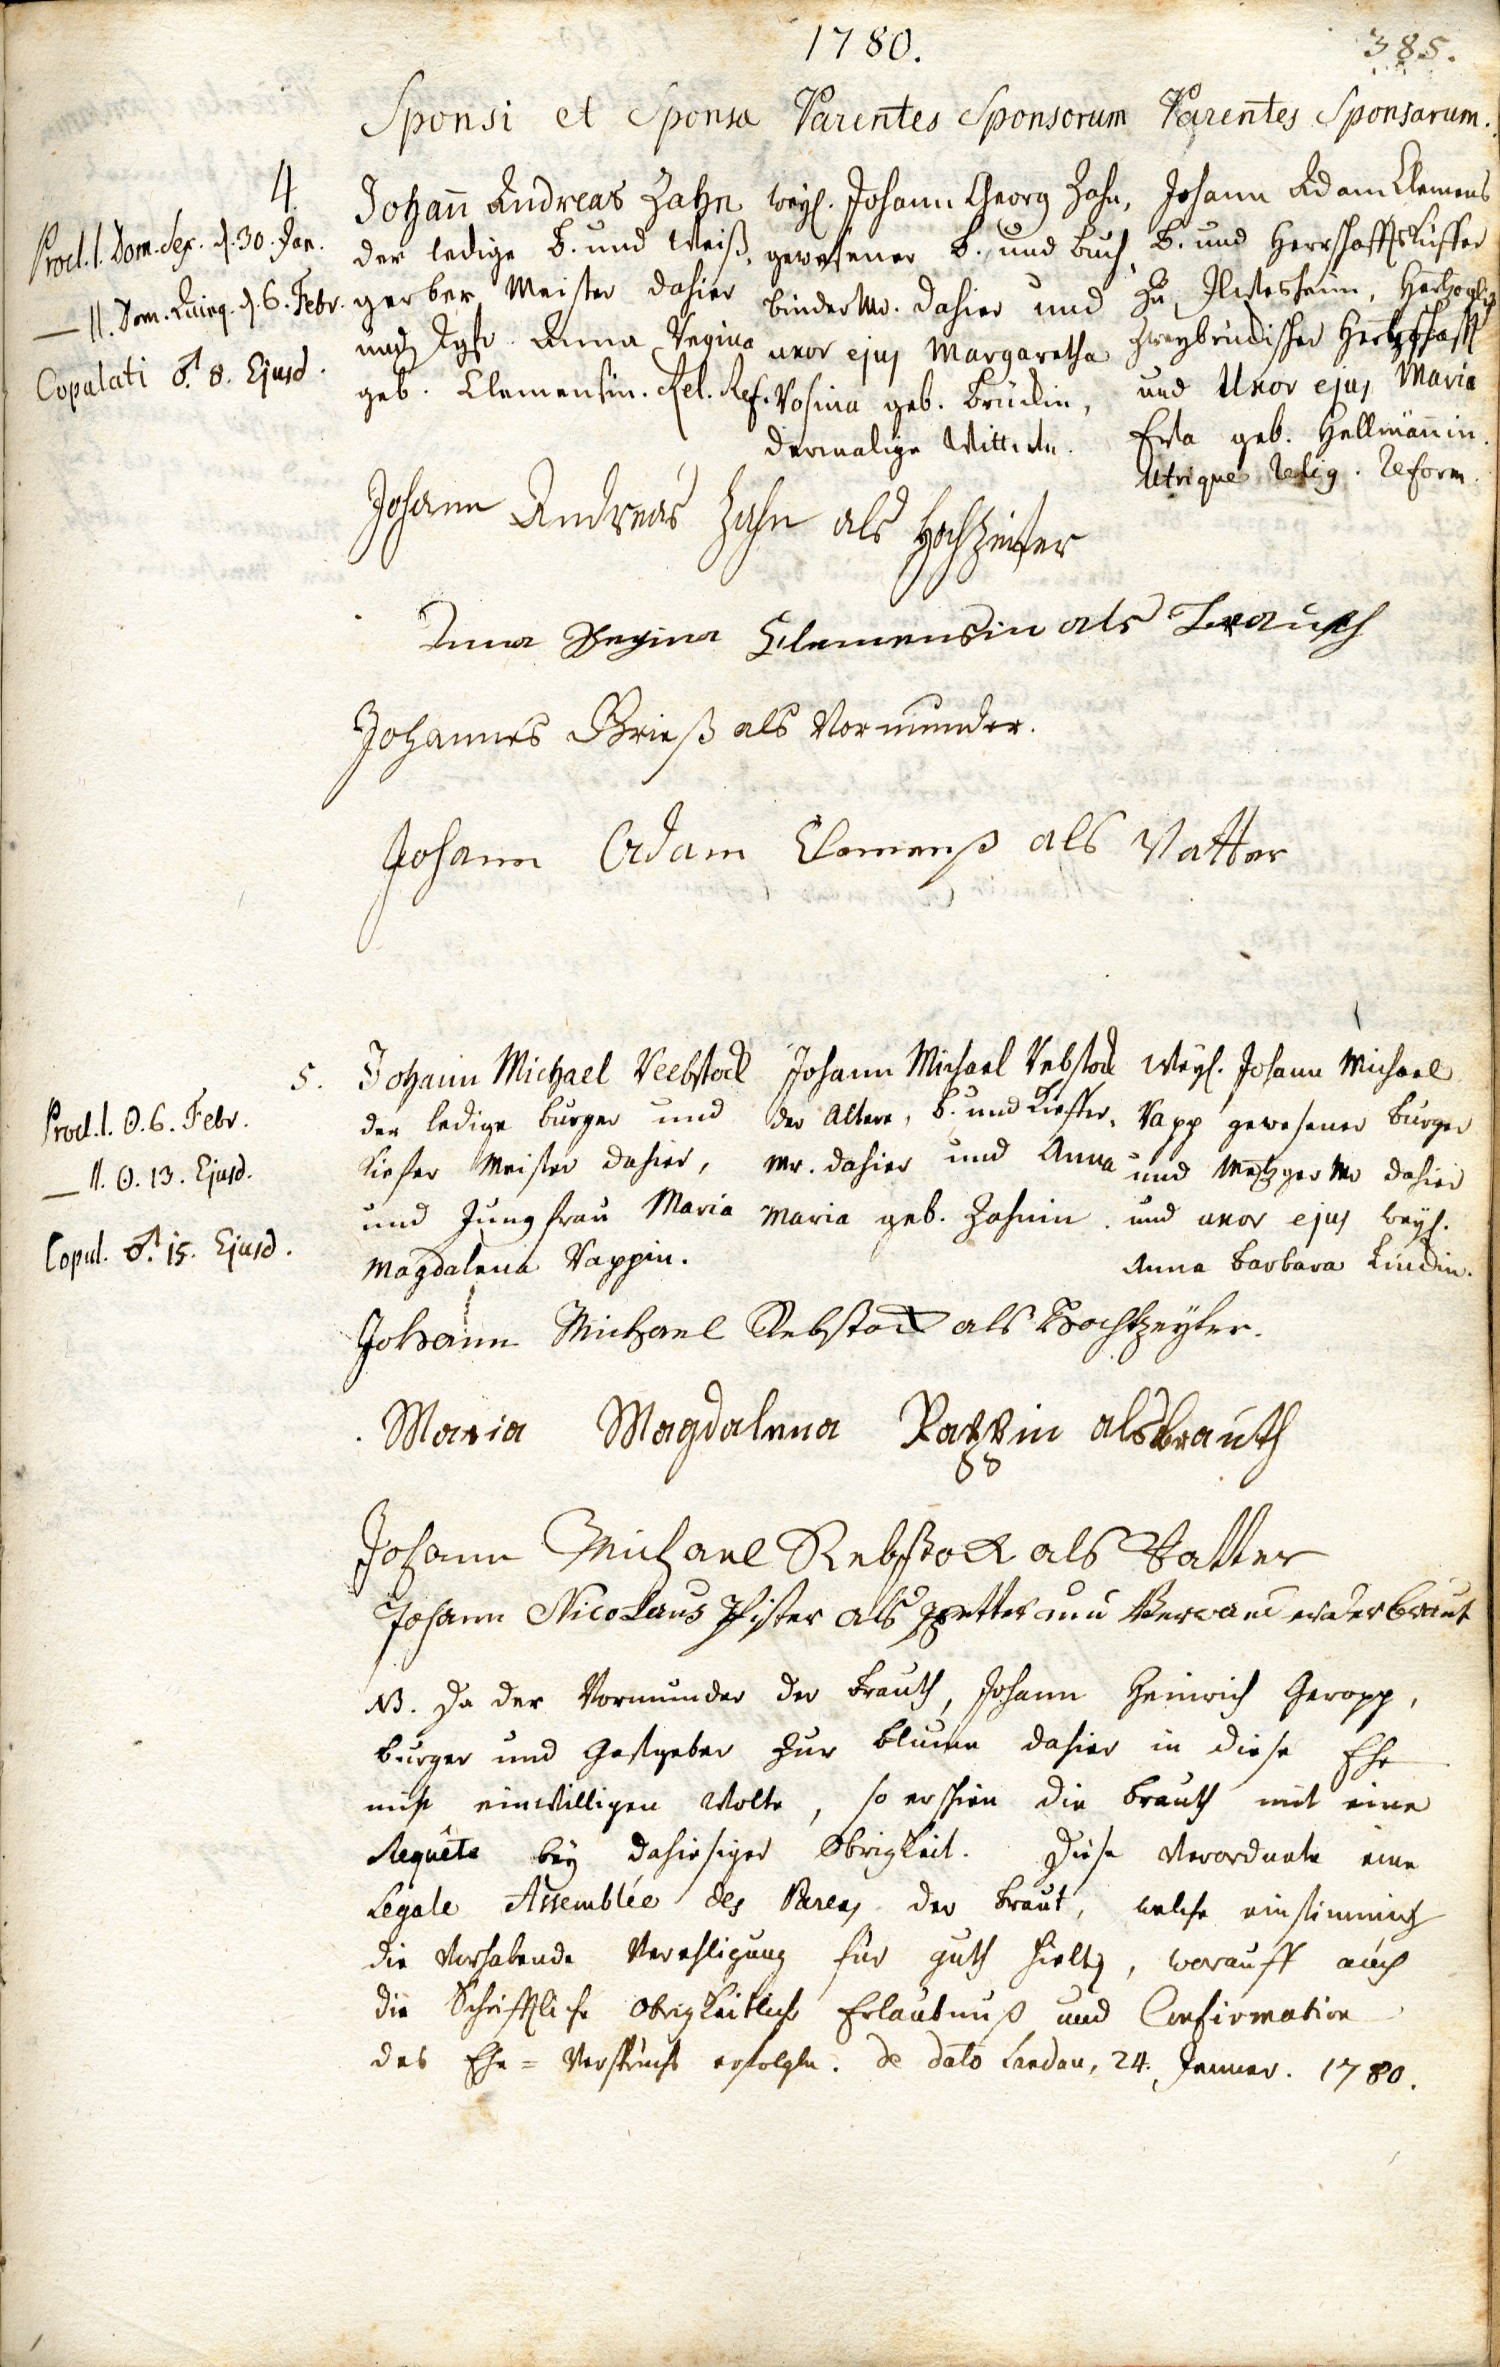 1780.
385.
Sponsi et Sponsa
Parentes Sponsorum
Parentes Sponsarum.
4.
Procl. I. Dom. Sex. d. 30. Jan.
— II. Dom. Quinq. d. 6. Febr.
Copulati ♂ 8. Ejusd.
Johann Andreas Zahn
der ledige B. und Weiß-
gerber Meister dahier
und Jgfr. Anna Regina
geb. Clementin. Rel. Ref.
weyl. Johann Georg Zahn,
gewesener B. und Buch-
binder Mr. dahier und
uxor ejus Margaretha
Rosina geb. Brückin,
dermalige Wittwe.
Johann Adam Clemens
B. und Herrschafftskuffer
zu Ilbesheim, Hertzoglich
Zweybrückischer Herrschafft
und Uxor ejus Maria
Eva geb. Hellmännin.
Utrique Relig. Reform.
Johann Andreas Zahn als Hochzeiter
Anna Regina Clemensin als Brauth
Johannes Grieß als Vormunder.
Johann Adam Clemenß als Vatter
5.
Procl. I. ☉. 6. Febr.
— II. ☉. 13. Ejusd.
Copul. ♂. 15. Ejusd.
Johann Michael Rebstock
der ledige burger und
Kiefer Meister dahier,
und Jungfrau Maria
Magdalena Rappin.
Johann Michael Rebstock
der Altere, B. und Kieffer-
Mr. dahier und Anna
Maria geb. Zahnin.
Weyl. Johann Michael
Rapp gewesener burger
und Metzger Mr dahier
und uxor ejus weyl.
Anna Barbara
Johann Michael Rebstock als Hochtzeyter.
Maria Magdalena Rappin als brauth
Johann Michael Rebstock als Vatter
Johann Nicolaus Pfister als pfetter und Verwand er der braut
NB. Da der Vormunder der Brauth, Johann Heinrich Geropp,
burger und Gastgeber zur Blume dahier in diese Ehe
nicht einwilligen wolte, so erschien die brauth mit eine
Requête bey dahiesiger Obrigkeit. Diese verordnete eine
Legale Assemblée des Parens der Braut, welche einstimmig
die vorhabende Verehligung für guth hielte, worauff auch
die Schrifftliche Obrigkeitliche Erlaubnuß und Confirmation
des Ehe=Verspruchs erfolgte. de dato Landau, 24. Jenner. 1780.